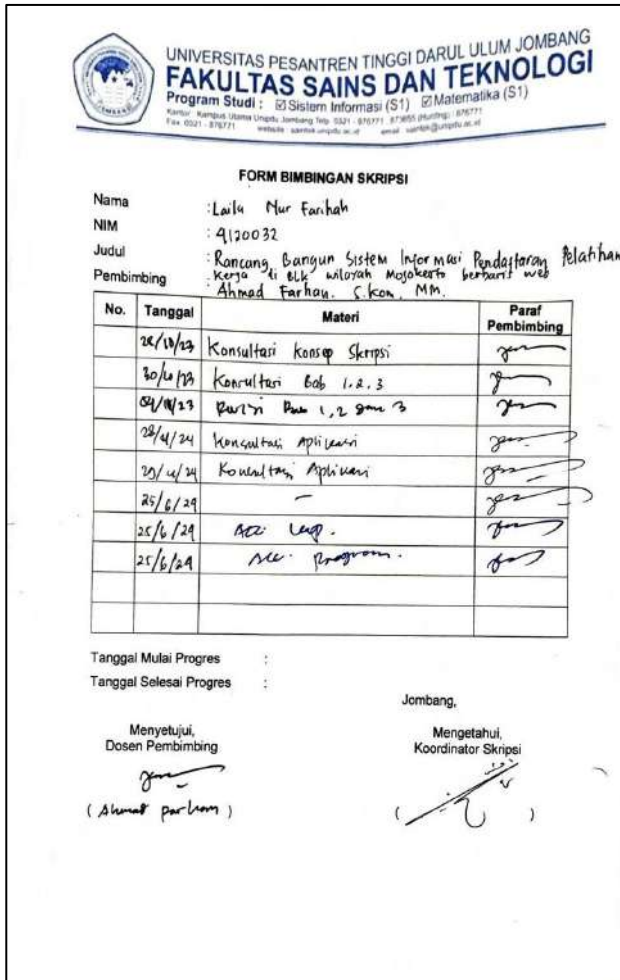 UNIVERSITAS PESANTREN TINGGI DARUL ULUM JOMBANG
FAKULTAS SAINS DAN TEKNOLOGI
Program Studi : ☑ Sistem Informasi (S1) ☑ Matematika (S1)
Kantor : Kampus Utama Unipdu Jombang Telp. 0321 - 876771, 873655 (Hunting) : 876771
Fax. 0321 - 876771 website : saintek.unipdu.ac.id email : saintek@unipdu.ac.id
FORM BIMBINGAN SKRIPSI
Nama : Laila Nur Farihah
NIM : 4120032
Judul : Rancang Bangun Sistem Informasi Pendaftaran Pelatihan
Kerja di BLK wilayah Mojokerto berbasis web
Pembimbing : Ahmad Farhan. S.Kom, MM.
No. Tanggal Materi Paraf Pembimbing
/10/23 Konsultasi konsep Skripsi
30/10/23 Konsultasi Bab 1, 2, 3
/23 Revisi Bab 1, 2 dan 3
28/4/24 Konsultasi Aplikasi
29/4/24 Konsultasi Aplikasi
25/6/24 -
25/6/24 Acc Lap.
25/6/24 Acc. Program.
Tanggal Mulai Progres :
Tanggal Selesai Progres :
Jombang,
Menyetujui,
Dosen Pembimbing
Mengetahui,
Koordinator Skripsi
(Ahmad Farhan)
( )